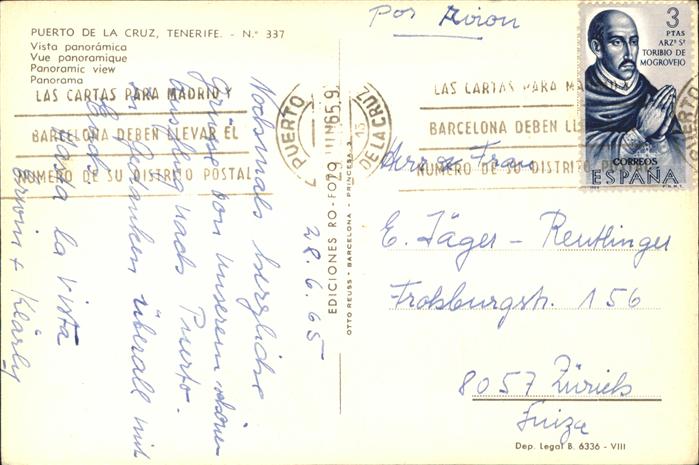 PUERTO DE LA CRUZ, TENERIFE. - N.º 337
Vista panorámica
Vue panoramique
Panoramic view
Panorama
LAS CARTAS PARA MADRID Y
BARCELONA DEBEN LLEVAR EL
NUMERO DE SU DISTRITO POSTAL
28.6.65
Nochmals herzliche
Grüsse von unserem schönen
Ausflug nach Puerto.
In Gedanken überall mit
Euch
Hasta la Vista
Erwin + Klärly
EDICIONES RO-FOTO
OTTO REUSS * BARCELONA - PRINCESA 3
PUERTO DE LA CRUZ
Por Avion
3
PTAS
ARZº Sº
TORIBIO DE
MOGROVEJO
CORREOS
ESPAÑA
F.N.M.T.
LAS CARTAS PARA MADRID
BARCELONA DEBEN LL
NUMERO DE SU DISTRITO PO
PUERTO
Herr & Frau
E. Jäger - Reutlinger
Frohburgstr. 156
8057 Zürich
Suiza
Dep. Legal B. 6336 - VIII